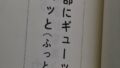 部にギュッ
ッと(ふっと